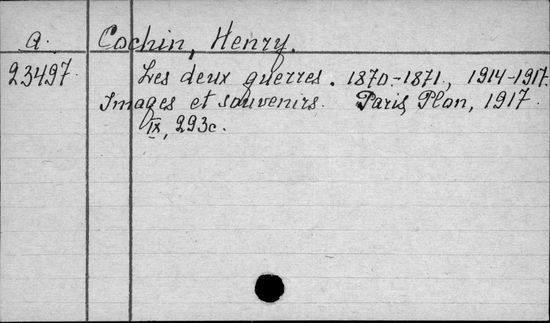 a. Cochin, Henry.
23497. Les deux guerres. 1870-1871, 1914-1917.
Images et souvenirs. Paris, Plon, 1917.
IX, 293c.